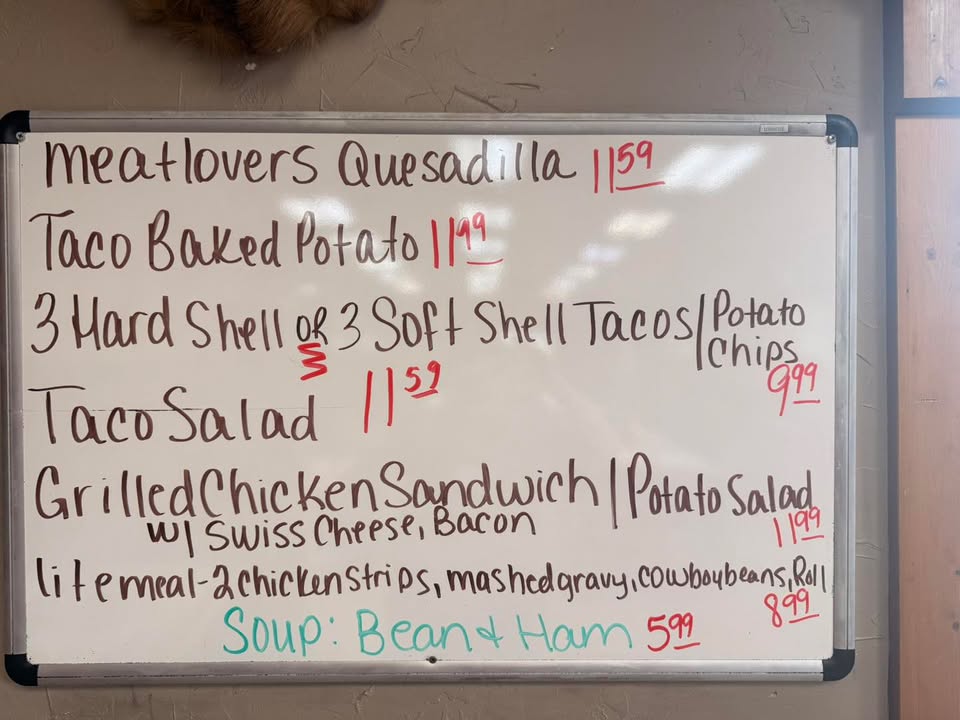 meatlovers Quesadilla 11 59
Taco Baked Potato 11 99
3 Hard Shell OR 3 Soft Shell Tacos/Potato Chips
9 99
Taco Salad 11 59
Grilled Chicken Sandwich / Potato Salad
w/ Swiss Cheese, Bacon 11 99
lite meal-2 chicken strips, mashed gravy, cowboy beans, Roll
8 99
Soup: Bean & Ham 5 99